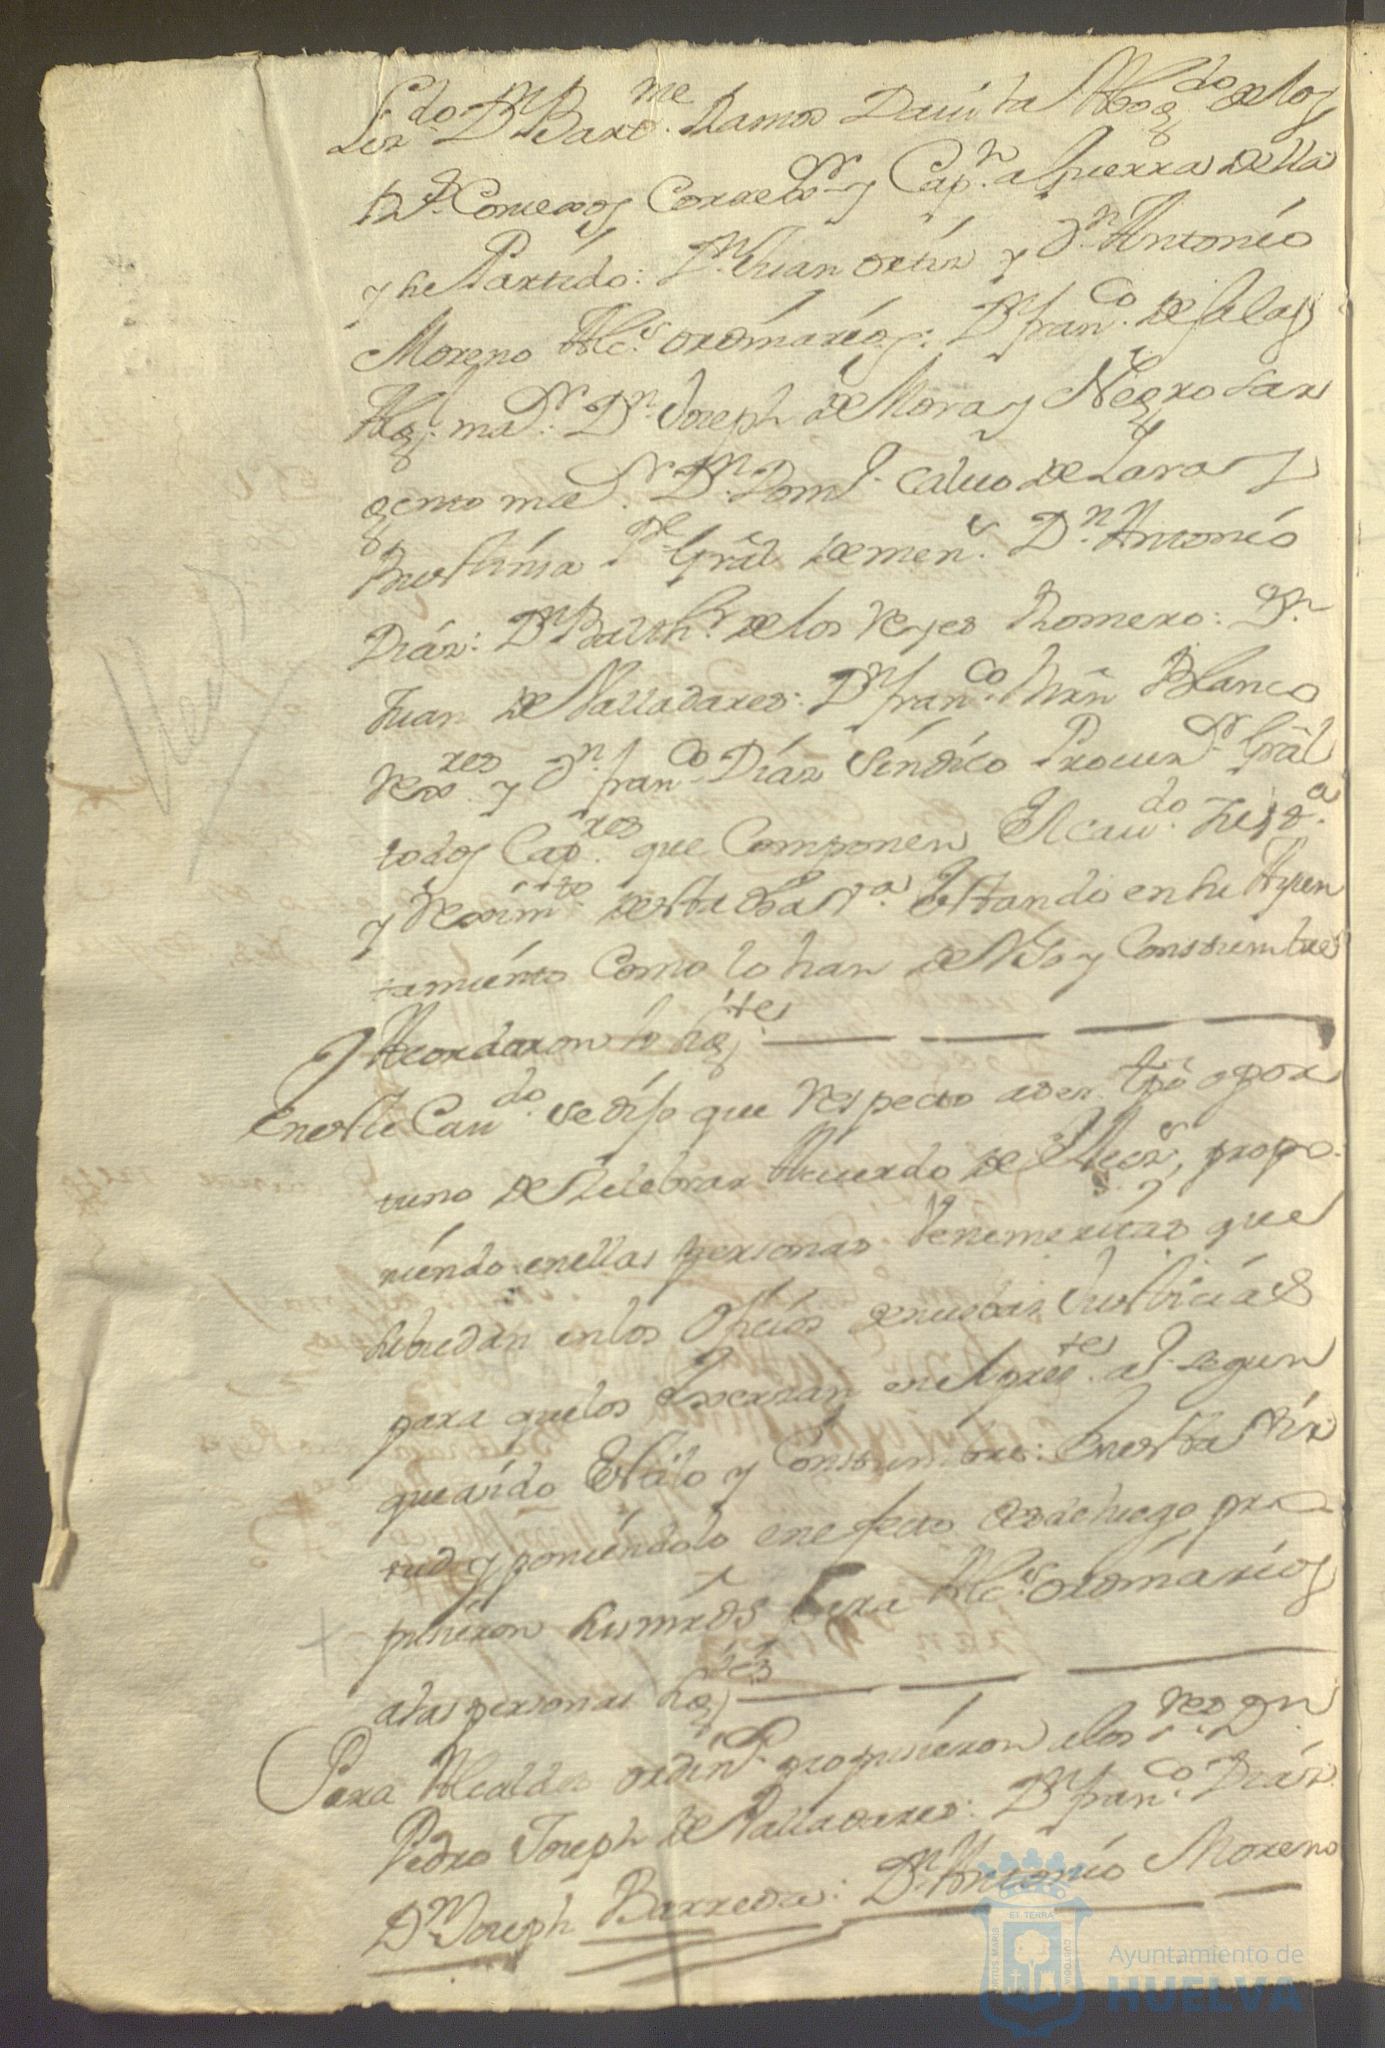 Lizdo. Dn Barme. Ramos Davila Abogdo de los
Rs. Consexos Correxor. y Capn. a Guerra della
y su Partido: Dn. Juan Ortiz y Dn. Antonio
Moreno Alcs. ordinarios: Dn franco. de Salas
Algl. mar. Dn. Joseph de Mora y Negro Sar
gento mr. Dn. Domo. Calvo de Lara y
Bustinsa Pe. Grãl de men.s Dn. Antonio
Diaz: Dn Balthr. de los Reyes Romero: Dn.
Juan de Valladares: Dn franco. Mrñ Blanco
Rexres. y Dn. franco. Diaz Sindico Procurr. Grãl
todos Capres. que Componen El cavdo. Justa.
y Reximto. desta dha Va. Estando en su Ayun
tamiento Como lo han de Vso y Constumbre
Acordaron lo sigtes.
En este Cavdo. se dijo que respecto a ser tpõ opor
tuno de Selebrar Acuerdo de Elecs, propo
niendo enellas personas Venemeritas que
subsedan en los Oficios denuebas Justicias
para quelos Exerzan en el preste. ao. segun
que a sido Estilo y Constumbre: En esta vir
tud y poniendolo en efecto desde luego pro
pusieron sus mrds̃ para Alcs. ordinarios
a las personas sigtes.
Para Alcaldes ordins. propusieron a los res. Dn.
Pedro Joseph de Valladares: Dn franco. Diaz
Dn Joseph Barreda: Dn. Antonio Moreno
Ayuntamiento de
HUELVA